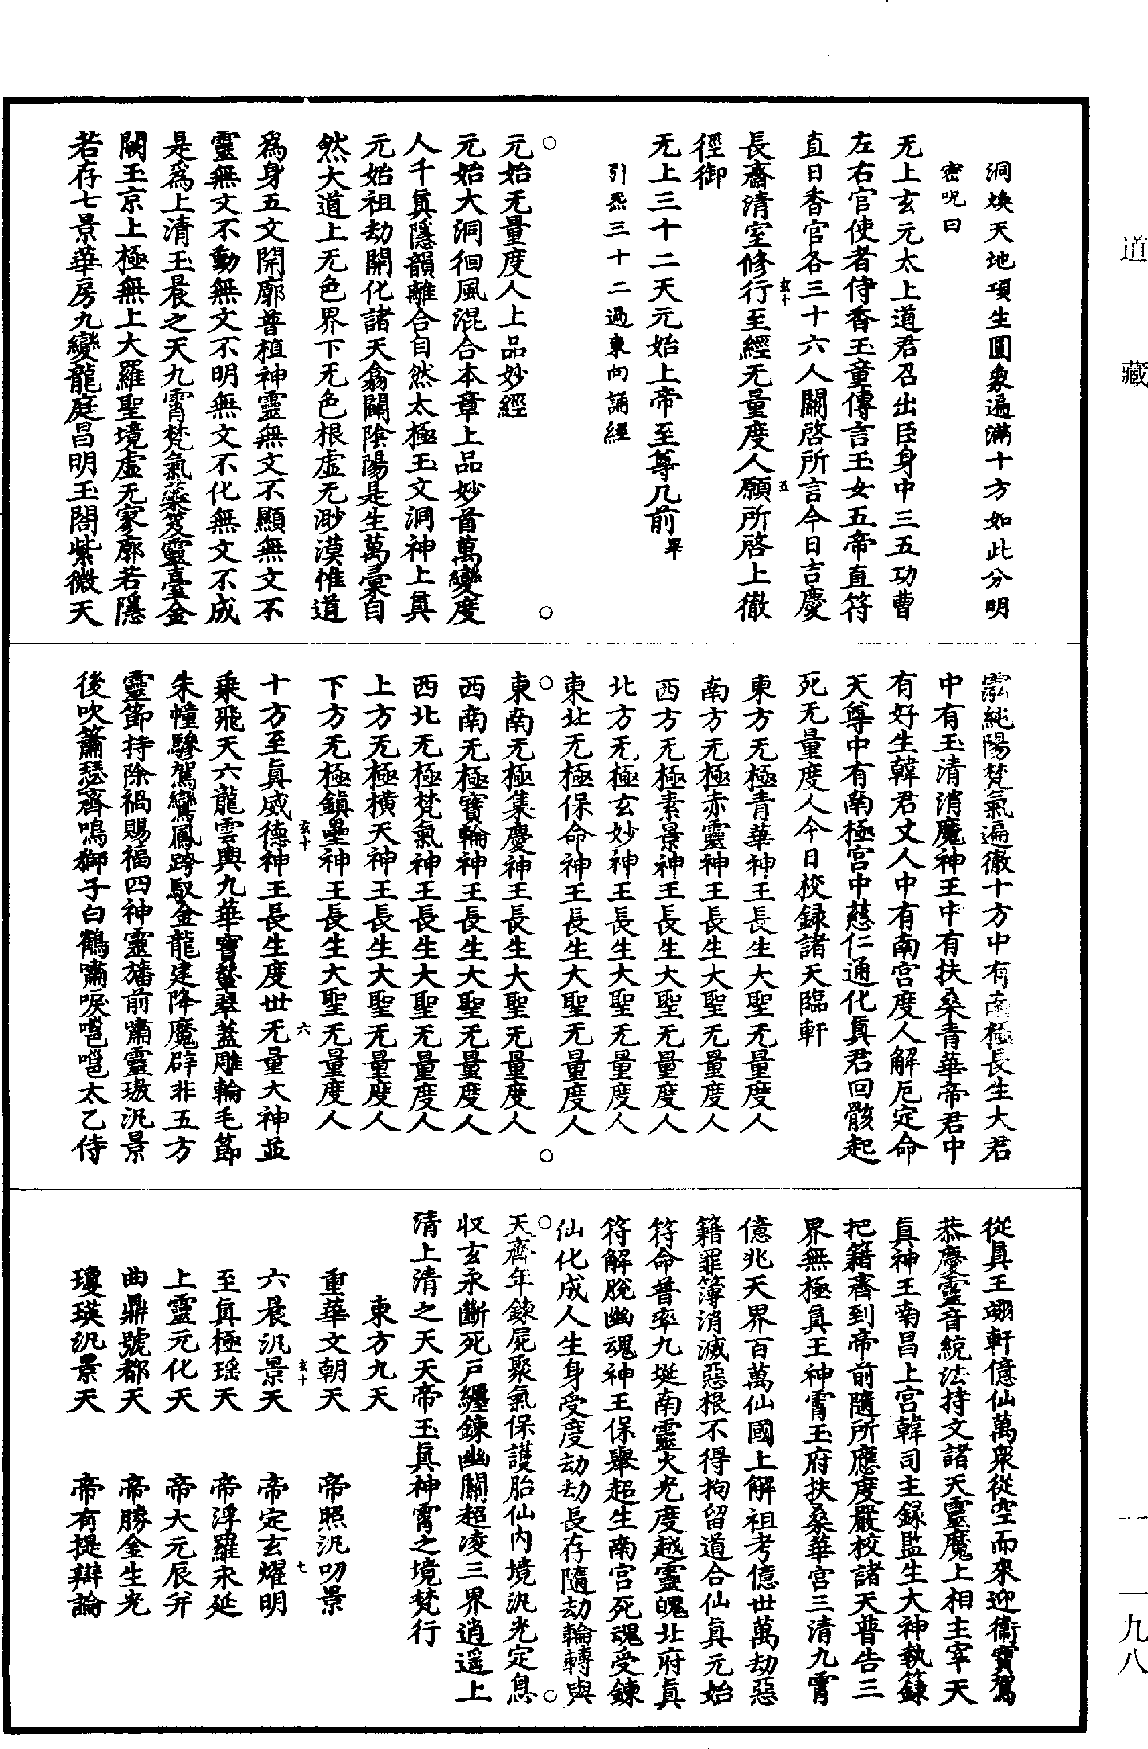 道藏
一
一九八
洞煥天地項生圓象遍滿十方如此分明
密呪曰
无上玄元太上道君召出臣身中三五功曹
左右官使者侍香玉童傳言玉女五帝直符
直日香官各三十六人關啓所言今日吉慶
長齋清室修行至經无量度人願所啓上徹
玄十
五
徑御
无上三十二天元始上帝至尊几前畢
引炁三十二過東向誦經
元始无量度人上品妙經
元始大洞徊風混合本章上品妙首萬變度
人千眞隱韻離合自然太極玉文洞神上眞
元始祖劫開化諸天翕闢陰陽是生萬彙自
然大道上无色界下无色根虛无渺漠惟道
爲身五文開廓普植神靈無文不顯無文不
靈無文不動無文不明無文不化無文不成
是爲上清玉晨之天九霄梵氣蘂笈靈臺金
闕玉京上極無上大羅聖境虛无寥廓若隱
若存七景華房九變龍庭昌明玉閤紫微天
純陽梵氣遍徹十方中有南極長生大君
中有玉清消魔神王中有扶桑青華帝君中
有好生韓君丈人中有南宮度人解厄定命
天尊中有南極宮中慈仁通化眞君回骸起
死无量度人今日校録諸天臨軒
東方无極青華神王長生大聖无量度人
南方无極赤靈神王長生大聖无量度人
西方无極素景神王長生大聖无量度人
北方无極玄妙神王長生大聖无量度人
東北无極保命神王長生大聖无量度人
東南无極集慶神王長生大聖无量度人
西南无極寳輪神王長生大聖无量度人
西北无極梵氣神王長生大聖无量度人
上方无極横天神王長生大聖无量度人
下方无極鎮壘神王長生大聖无量度人
玄十
六
十方至眞威德神王長生度世无量大神並
乘飛天六龍雲輿九華寳蓥翠蓋雕輪毛節
朱幢驂駕鸞鳳跨馭金龍建降魔辟非五方
靈節持除禍賜福四神靈旛前嘯靈璈汎景
後吹簫瑟齊鳴獅子白鶴嘯唳嗈嗈太乙侍
從眞王翊軒億仙萬衆從空而來迎衛寳駕
恭慶靈音統法持文諸天靈魔上相主宰天
眞神王南昌上宮韓司主録監生大神執籙
把籍齎到帝前隨所應度嚴校諸天普告三
界無極眞王神霄玉府扶桑華宮三清九霄
億兆天界百萬仙國上解祖考億世萬劫惡
籍罪簿消滅惡根不得拘留道合仙眞元始
符命普率九埏南靈火光度越靈魄北府眞
符解脫幽魂神王保舉超生南宮死魂受鍊
仙化成人生身受度劫劫長存隨劫輪轉與
天齊年錬屍聚氣保護胎仙內境汎光定息
収玄永斷死戸纏鍊幽關超凌三界逍遥上
清上清之天天帝玉眞神霄之境梵行
東方九天
重華文朝天　帝照汎叨景
玄十
七
六晨汎景天　帝定玄燿明
至眞極瑶天　帝浮羅永延
上靈元化天　帝大元辰弁
曲鼎號都天　帝勝金生光
瓊瑛汎景天　帝有提辯論